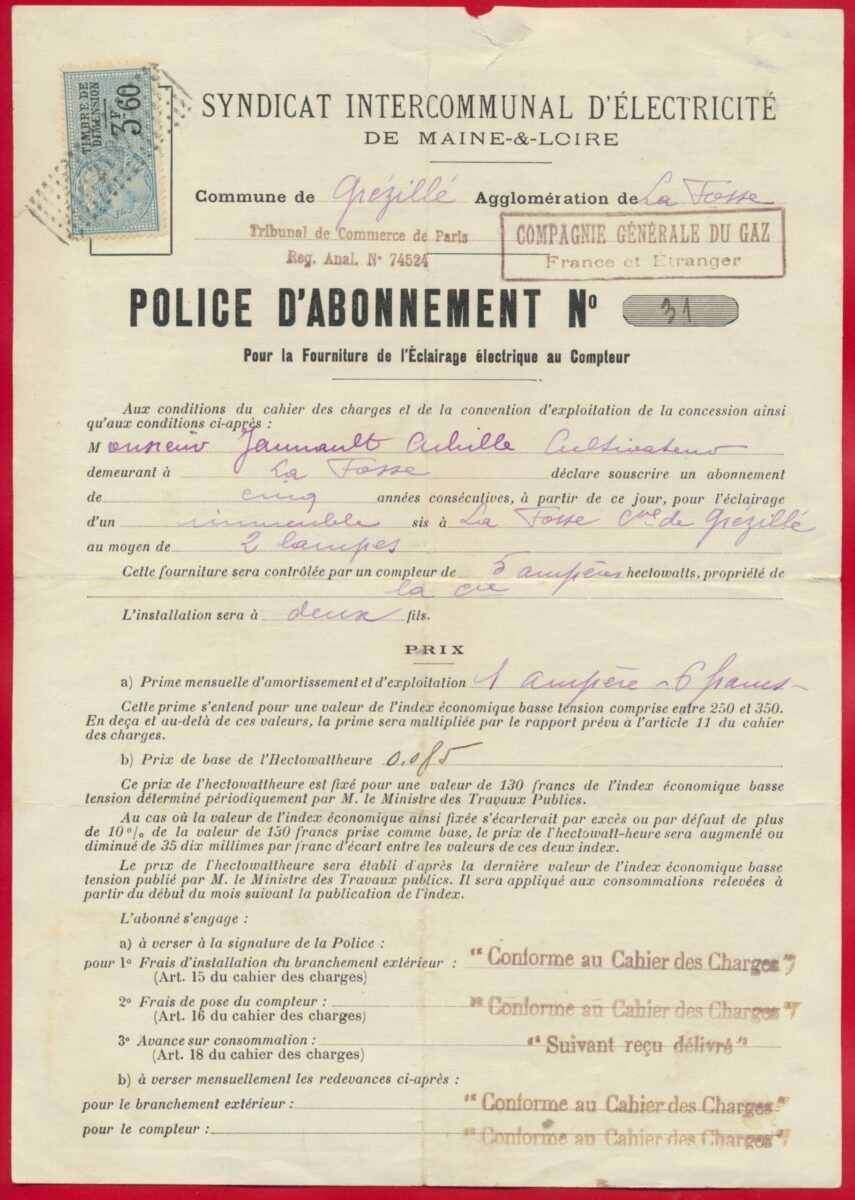 TIMBRE DE
DIMENSION
3F60
SYNDICAT INTERCOMMUNAL D'ÉLECTRICITÉ
DE MAINE-&-LOIRE
Commune de Grézillé Agglomération de La Fosse
Tribunal de Commerce de Paris
Reg. Anal. N° 74524
COMPAGNIE GÉNÉRALE DU GAZ
France et Étranger
POLICE D'ABONNEMENT N° 31
Pour la Fourniture de l'Éclairage électrique au Compteur
Aux conditions du cahier des charges et de la convention d'exploitation de la concession ainsi
qu'aux conditions ci-après :
Monsieur Jannault Achille Cultivateur
demeurant à La Fosse déclare souscrire un abonnement
de cinq années consécutives, à partir de ce jour, pour l'éclairage
d'un immeuble sis à La Fosse Cne de Grézillé
au moyen de 2 lampes
Cette fourniture sera contrôlée par un compteur de 5 ampères hectowatts, propriété de
la Cie
L'installation sera à deux fils.
PRIX
a) Prime mensuelle d'amortissement et d'exploitation 1 ampère - 6 francs -
Cette prime s'entend pour une valeur de l'index économique basse tension comprise entre 250 et 350.
En deça et au-delà de ces valeurs, la prime sera multipliée par le rapport prévu à l'article 11 du cahier
des charges.
b) Prix de base de l'Hectowattheure 0.085
Ce prix de l'hectowattheure est fixé pour une valeur de 130 francs de l'index économique basse
tension déterminé périodiquement par M. le Ministre des Travaux Publics.
Au cas où la valeur de l'index économique ainsi fixée s'écarterait par excès ou par défaut de plus
de 10% de la valeur de 130 francs prise comme base, le prix de l'hectowatt-heure sera augmenté ou
diminué de 35 dix millimes par franc d'écart entre les valeurs de ces deux index.
Le prix de l'hectowattheure sera établi d'après la dernière valeur de l'index économique basse
tension publié par M. le Ministre des Travaux publics. Il sera appliqué aux consommations relevées à
partir du début du mois suivant la publication de l'index.
L'abonné s'engage :
a) à verser à la signature de la Police :
pour 1° Frais d'installation du branchement extérieur : "Conforme au Cahier des Charges"
(Art. 15 du cahier des charges)
2° Frais de pose du compteur : "Conforme au Cahier des Charges"
(Art. 16 du cahier des charges)
3° Avance sur consommation : "Suivant reçu délivré"
(Art. 18 du cahier des charges)
b) à verser mensuellement les redevances ci-après :
pour le branchement extérieur : "Conforme au Cahier des Charges"
pour le compteur : "Conforme au Cahier des Charges"